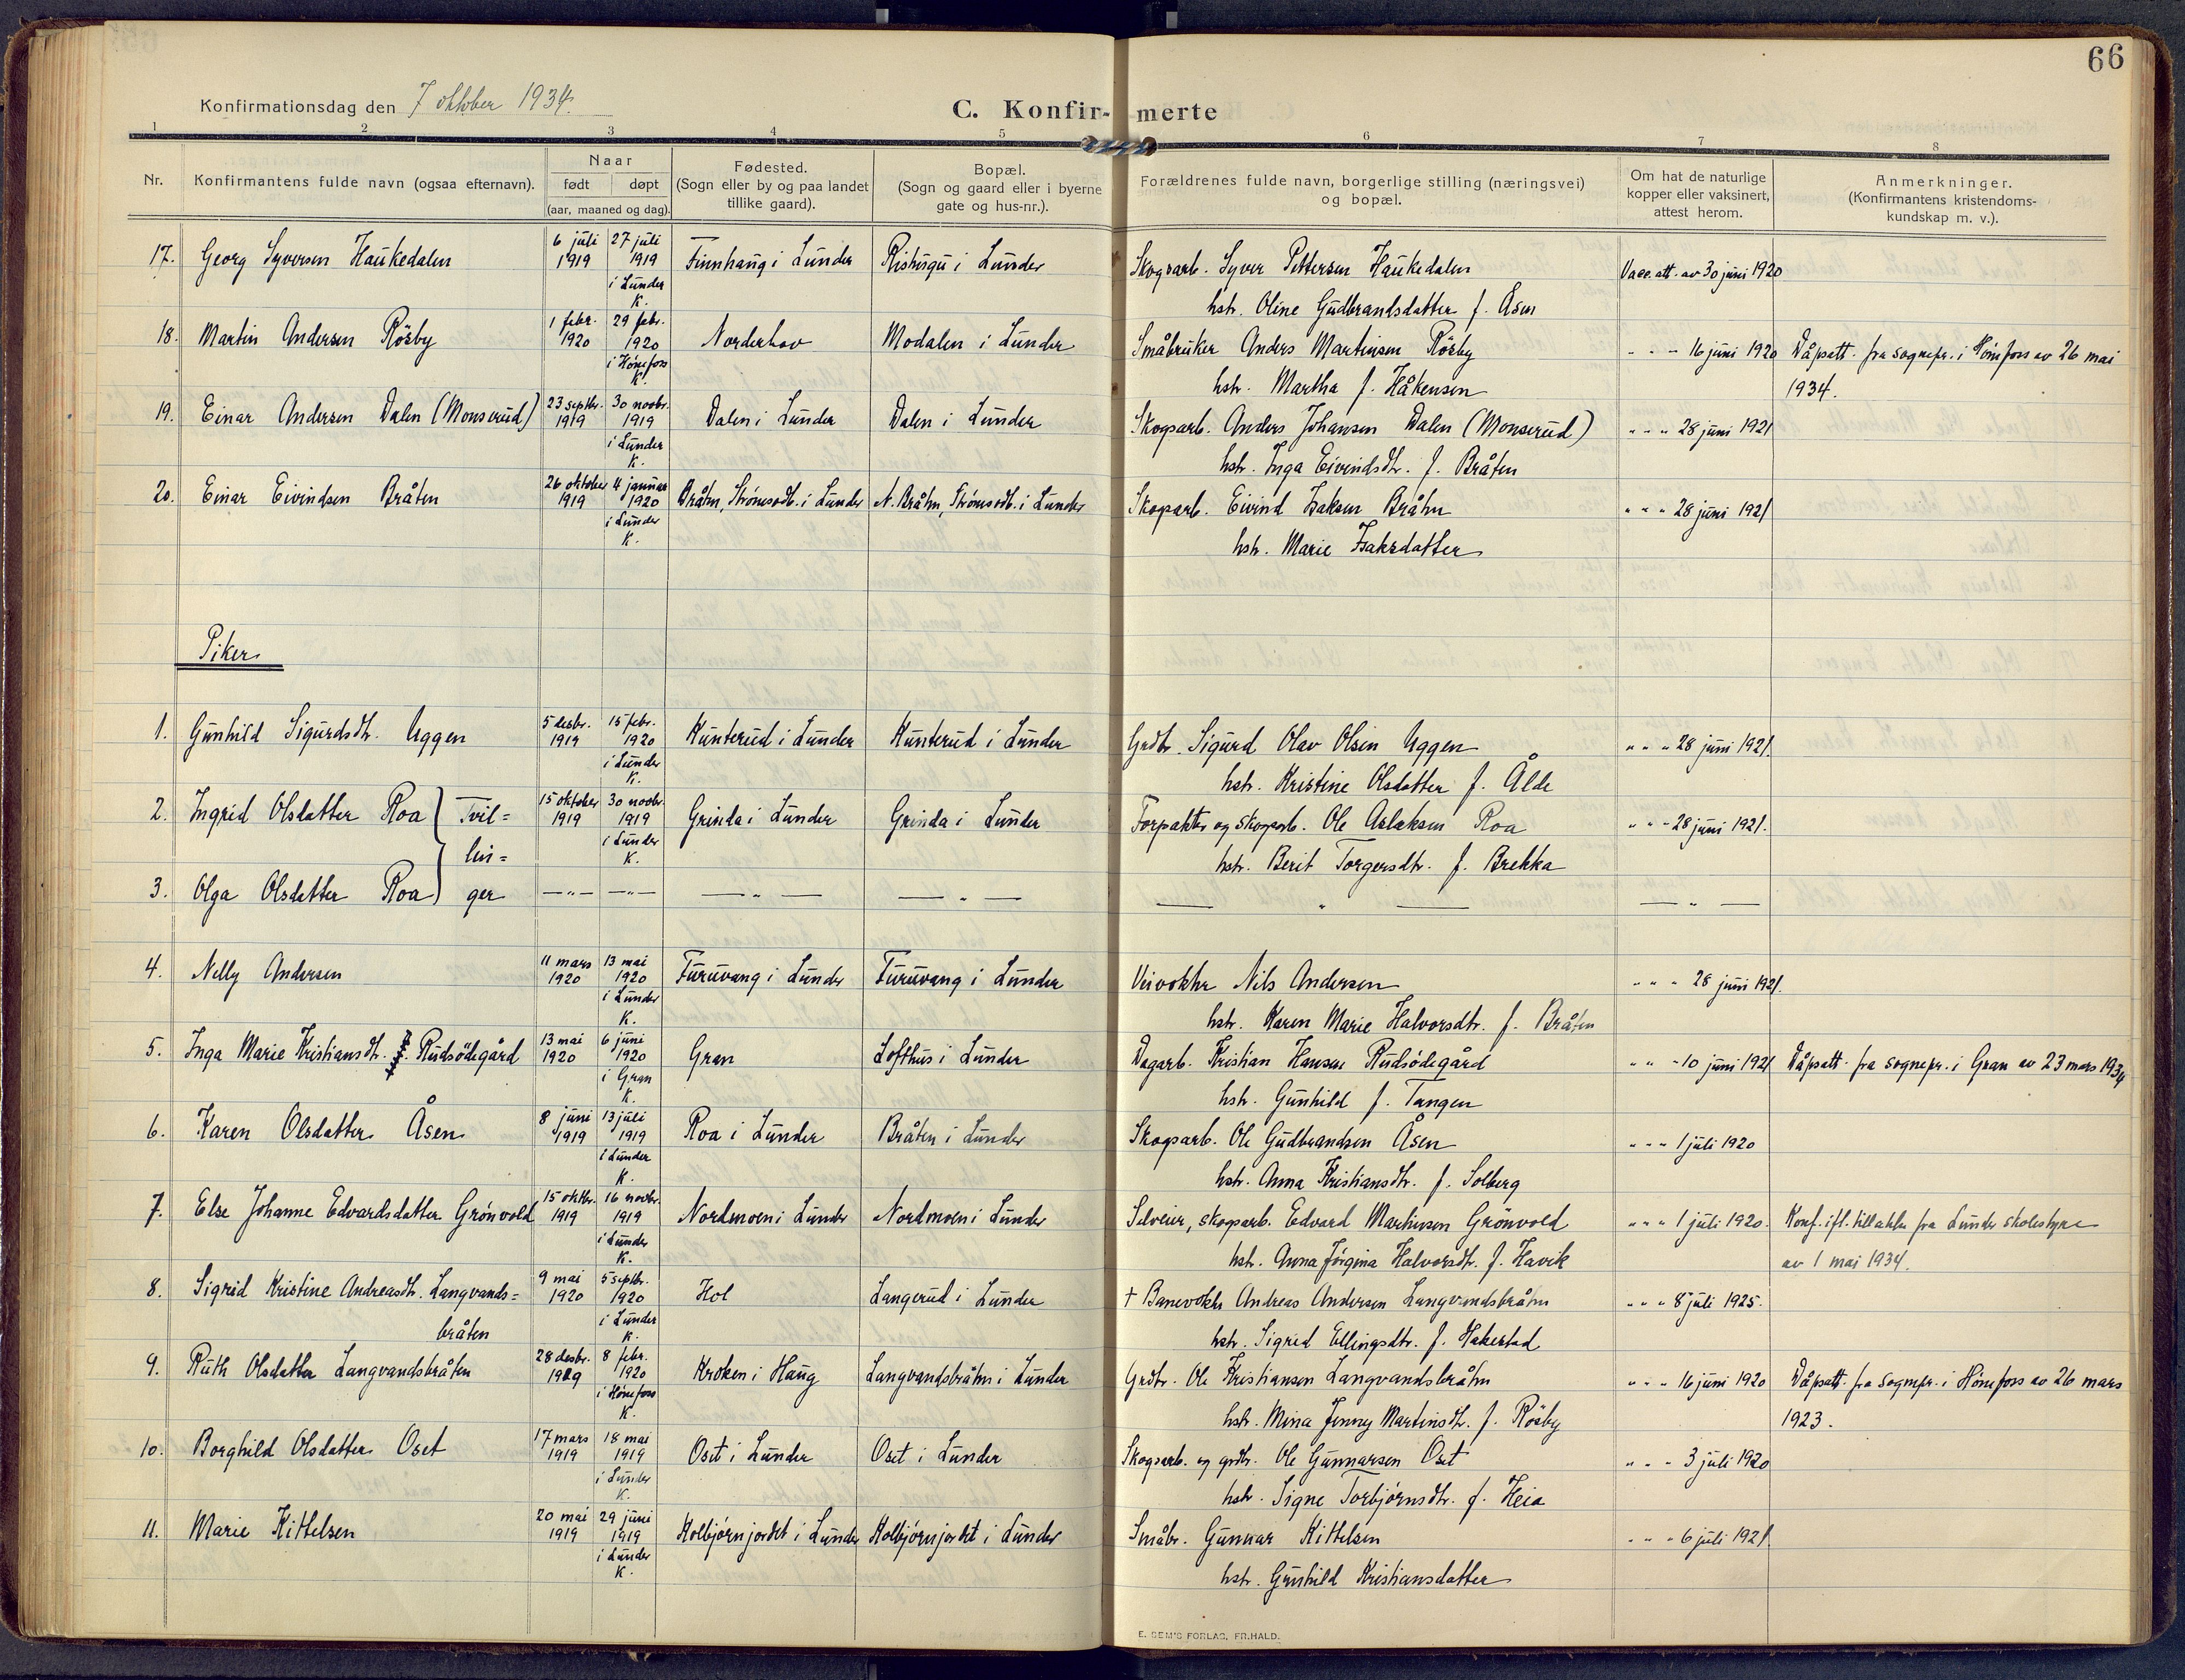 66
Konfirmationsdag den 7 oktober 1934.
C. Konfir- merte
1 2 3 4 5 6 7 8
Nr.
Konfirmantens fulde navn (ogsaa efternavn).
Naar
født døpt
(aar, maaned og dag).
Fødested.
(Sogn eller by og paa landet
tillike gaard).
Bopæl.
(Sogn og gaard eller i byerne
gate og hus-nr.).
Forældrenes fulde navn, borgerlige stilling (næringsvei)
og bopæl.
Om hat de naturlige
kopper eller vaksinert,
attest herom.
Anmerkninger.
(Konfirmantens kristendoms-
kundskap m. v.).
17. Georg Syversen Haukedalen 6 juli 1919 27 juli 1919 i Lunder K. Finnhaug i Lunder i Lunder Skogsarb. Syver Pettersen Haukedalen Vacc. att. av 30 juni 1920
hstr. Oline Gudbrandsdatter f. Åsen
18. Martin Andersen Rösby 1 febr. 1920 29 febr. 1920 i Hønefoss K. Norderhov Modalen i Lunder Småbruker Anders Martinsen Rösby " " " 16 juni 1920 Dåpsatt. fra sognepr. i Hønefoss av 26 mai
hstr. Martha f. Håkensen 1934.
19. Einar Andersen Dalen (Monserud) 23 septbr. 1919 30 novbr. 1919 i Lunder K. Dalen i Lunder Dalen i Lunder Skogsarb. Anders Johansen Dalen (Monserud) " " " 28 juni 1921
hstr. Inga Eivindsdtr. f. Bråten
20. Einar Eivindsen Bråten 26 oktober 1919 4 januar 1920 i Lunder K. Bråten, Strömsodb. i Lunder N. Bråten, Strömsodb. i Lunder Skogsarb. Eivind Isaksen Bråten " " " 28 juni 1921
hstr. Marie Isaksdatter
Piker
1. Gunhild Sigurdsdtr. Uggen 5 desbr. 1919 15 febr. 1920 i Lunder K. Hunterud i Lunder Hunterud i Lunder Grdbr. Sigurd Olav Olsen Uggen " " " 28 juni 1921.
hstr. Kristine Olsdatter f. Ålde
2. Ingrid Olsdatter Roa } Tvil= 15 oktober 1919 30 novbr. 1919 i Lunder K. Grinda i Lunder Grinda i Lunder Forpakter og skogsarb. Ole Aslaksen Roa " " " 28 juni 1921.
lin= hstr. Berit Torgersdtr. f. Brekka
3. Olga Olsdatter Roa } ger —"— —"— — " — — " — — " — — " —
4. Nelly Andersen 11 mars 1920 13 mai 1920 i Lunder K. Furuvang i Lunder Furuvang i Lunder Veivokter Nils Andersen " " " 28 juni 1921.
hstr. Karen Marie Halvorsdtr. f. Bråten
5. Inga Marie Kristiansdtr. Rudsödegård 13 mai 1920 6 juni 1920 i Gran K. Gran Lofthus i Lunder Dagarb. Kristian Hansen Rudsödegård " " " 10 juni 1921 Dåpsatt. fra sognepr. i Gran av 23 mars 1934
hstr. Gunhild f. Tangen
6. Karen Olsdatter Åsen 8 juni 1919 13 juli 1919 i Lunder K. Roa i Lunder Bråten i Lunder Skogsarb. Ole Gudbrandsen Åsen " " " 1 juli 1920
hstr. Anna Kristiansdtr. f. Solberg
7. Else Johanne Edvardsdatter Grönvold 15 oktbr. 1919 16 novbr. 1919 i Lunder K. Nordmoen i Lunder Nordmoen i Lunder Selveier, skogsarb. Edvard Martinsen Grönvold " " " 1 juli 1920. Konf. ifl. tillatelse fra Lunder skolestyre
hstr. Anna Jörgina Halvorsdtr. f. Havik av 1 mai 1934.
8. Sigrid Kristine Andreasdtr. Langvands= 9 mai 1920 5 septbr. 1920 i Lunder K. Hol Langerud i Lunder † Banevokter Andreas Andersen Langvandsbråten " " " 8 juli 1925.
bråten hstr. Sigrid Ellingsdtr. f. Hakestad
9. Ruth Olsdatter Langvandsbråten 28 desbr. 1919 8 febr. 1920 i Hønefoss K. Kroken i Haug Langvandsbråten i Lunder Grdbr. Ole Kristiansen Langvandsbråten " " " 16 juni 1920 Dåpsatt. fra sognepr. i Hønefoss av 26 mars
hstr. Mina Jenny Martinsdtr. f. Rösby 1923.
10. Borghild Olsdatter Oset 17 mars 1919 18 mai 1919 i Lunder K. Oset i Lunder Oset i Lunder Skogsarb. og grdbr. Ole Gunnarsen Oset " " " 3 juli 1920
hstr. Signe Torbjörnsdtr. f. Heia
11. Marie Kittelsen 20 mai 1919 29 juni 1919 i Lunder K. Kolbjörnjordet i Lunder Kolbjörnjordet i Lunder Småbr. Gunnar Kittelsen " " " 6 juli 1921.
hstr. Gunhild Kristiansdatter
E. SEM'S FORLAG, FR.HALD.